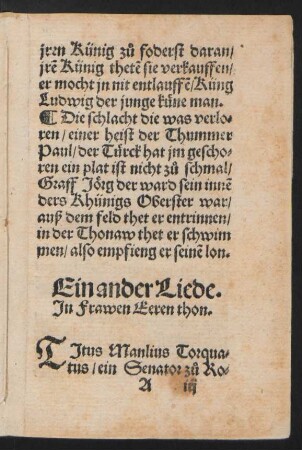 jren Künig zů foderst daran/
jrẽ Künig thetẽ sie verkauffen/
er mocht jn nit entlauffẽ/Küng
Ludwig der junge küne man.
¶ Die schlacht die was verlo
ren/einer heist der Thummer
Paul/der Türck hat jm gescho
ren ein plat ist nicht zů schmal/
Graff Jörg der ward sein innẽ
ders Khünigs Oberster war/
auß dem feld thet er entrinnen/
in der Thonaw thet er schwim
men/also empfieng er seinẽ lon.
Ein ander Liede.
In Frawen Eeren thon.
TItus Manlius Torqua-
tus/ein Senator zů Ro-
A iij